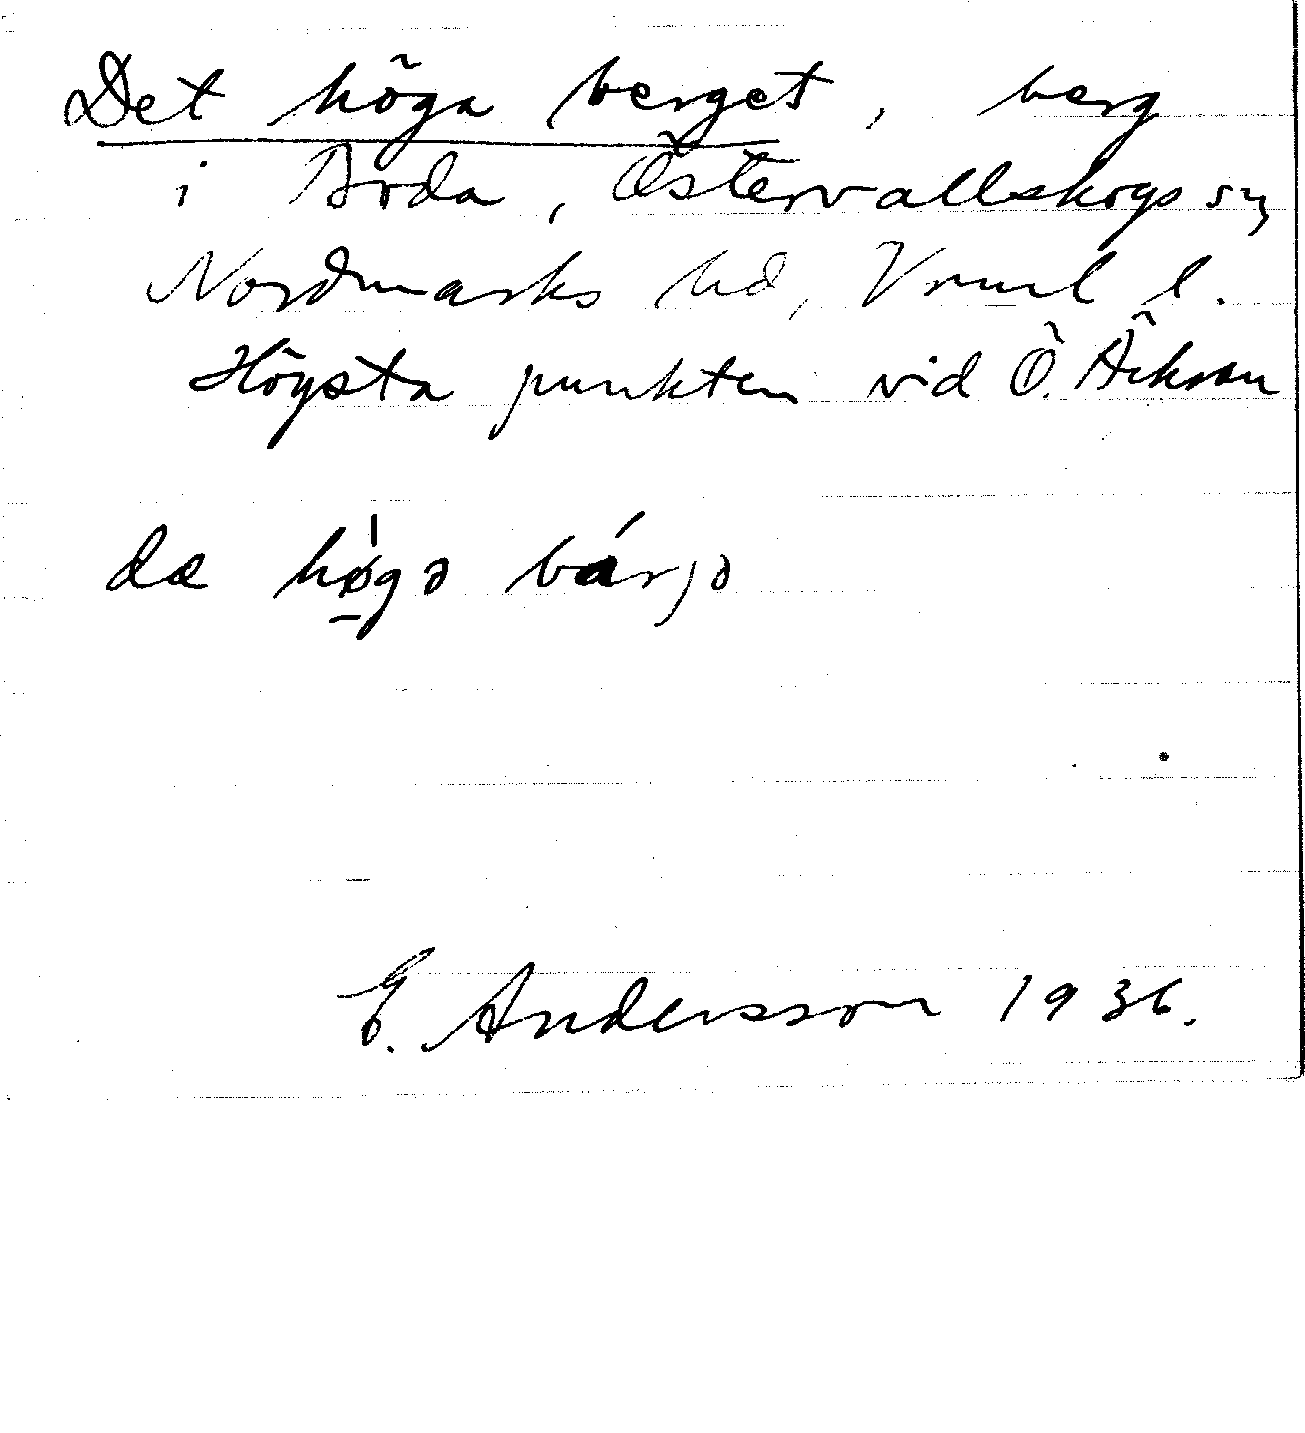 Det höga berget, berg
i Boda, Östervallskogs sn,
Nordmarks hd, Vrml l.
Högsta punkten vid Ö.
da høgə bárjə
E. Andersson 1936.